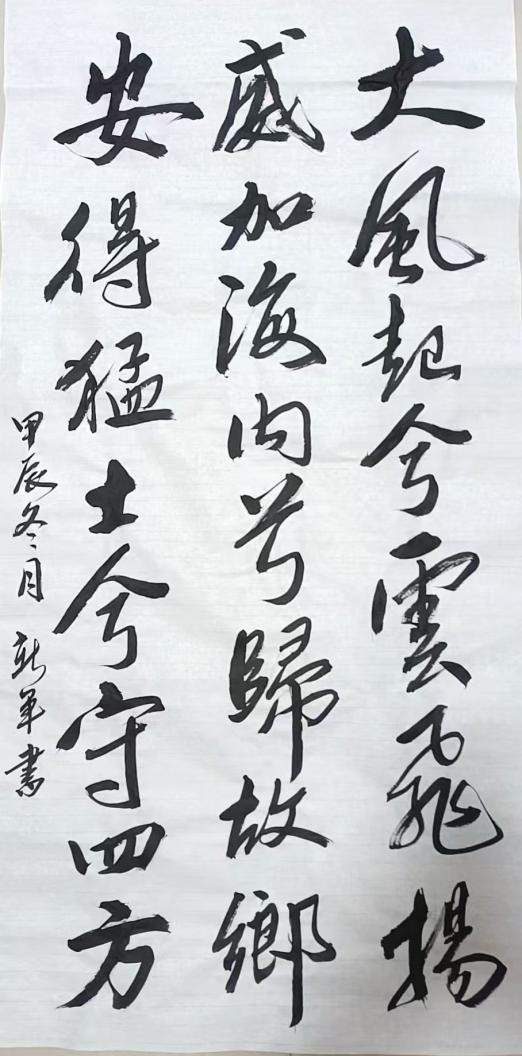 大風起兮雲飛揚
威加海内兮歸故鄉
安得猛士兮守四方
甲辰冬月 新軍書